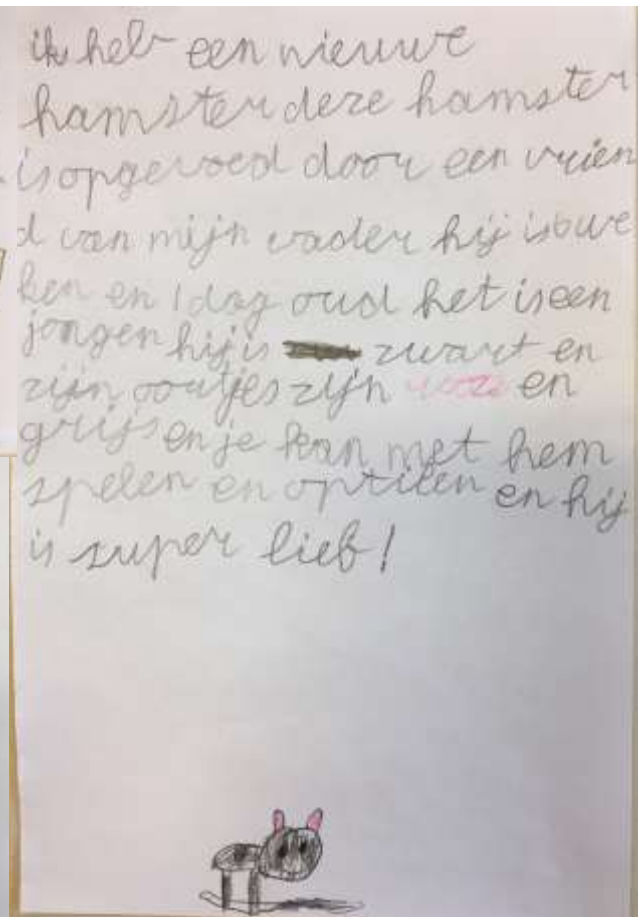 ik heb een nieuwe
hamster deze hamster
is opgevoed door een vrien
d van mijn vader hij is 6 we
ken en 1 dag oud het is een
jongen hij is zwart en
zijn oortjes zijn roze en
grijs en je kan met hem
spelen en optilen en hij
is super lieb!